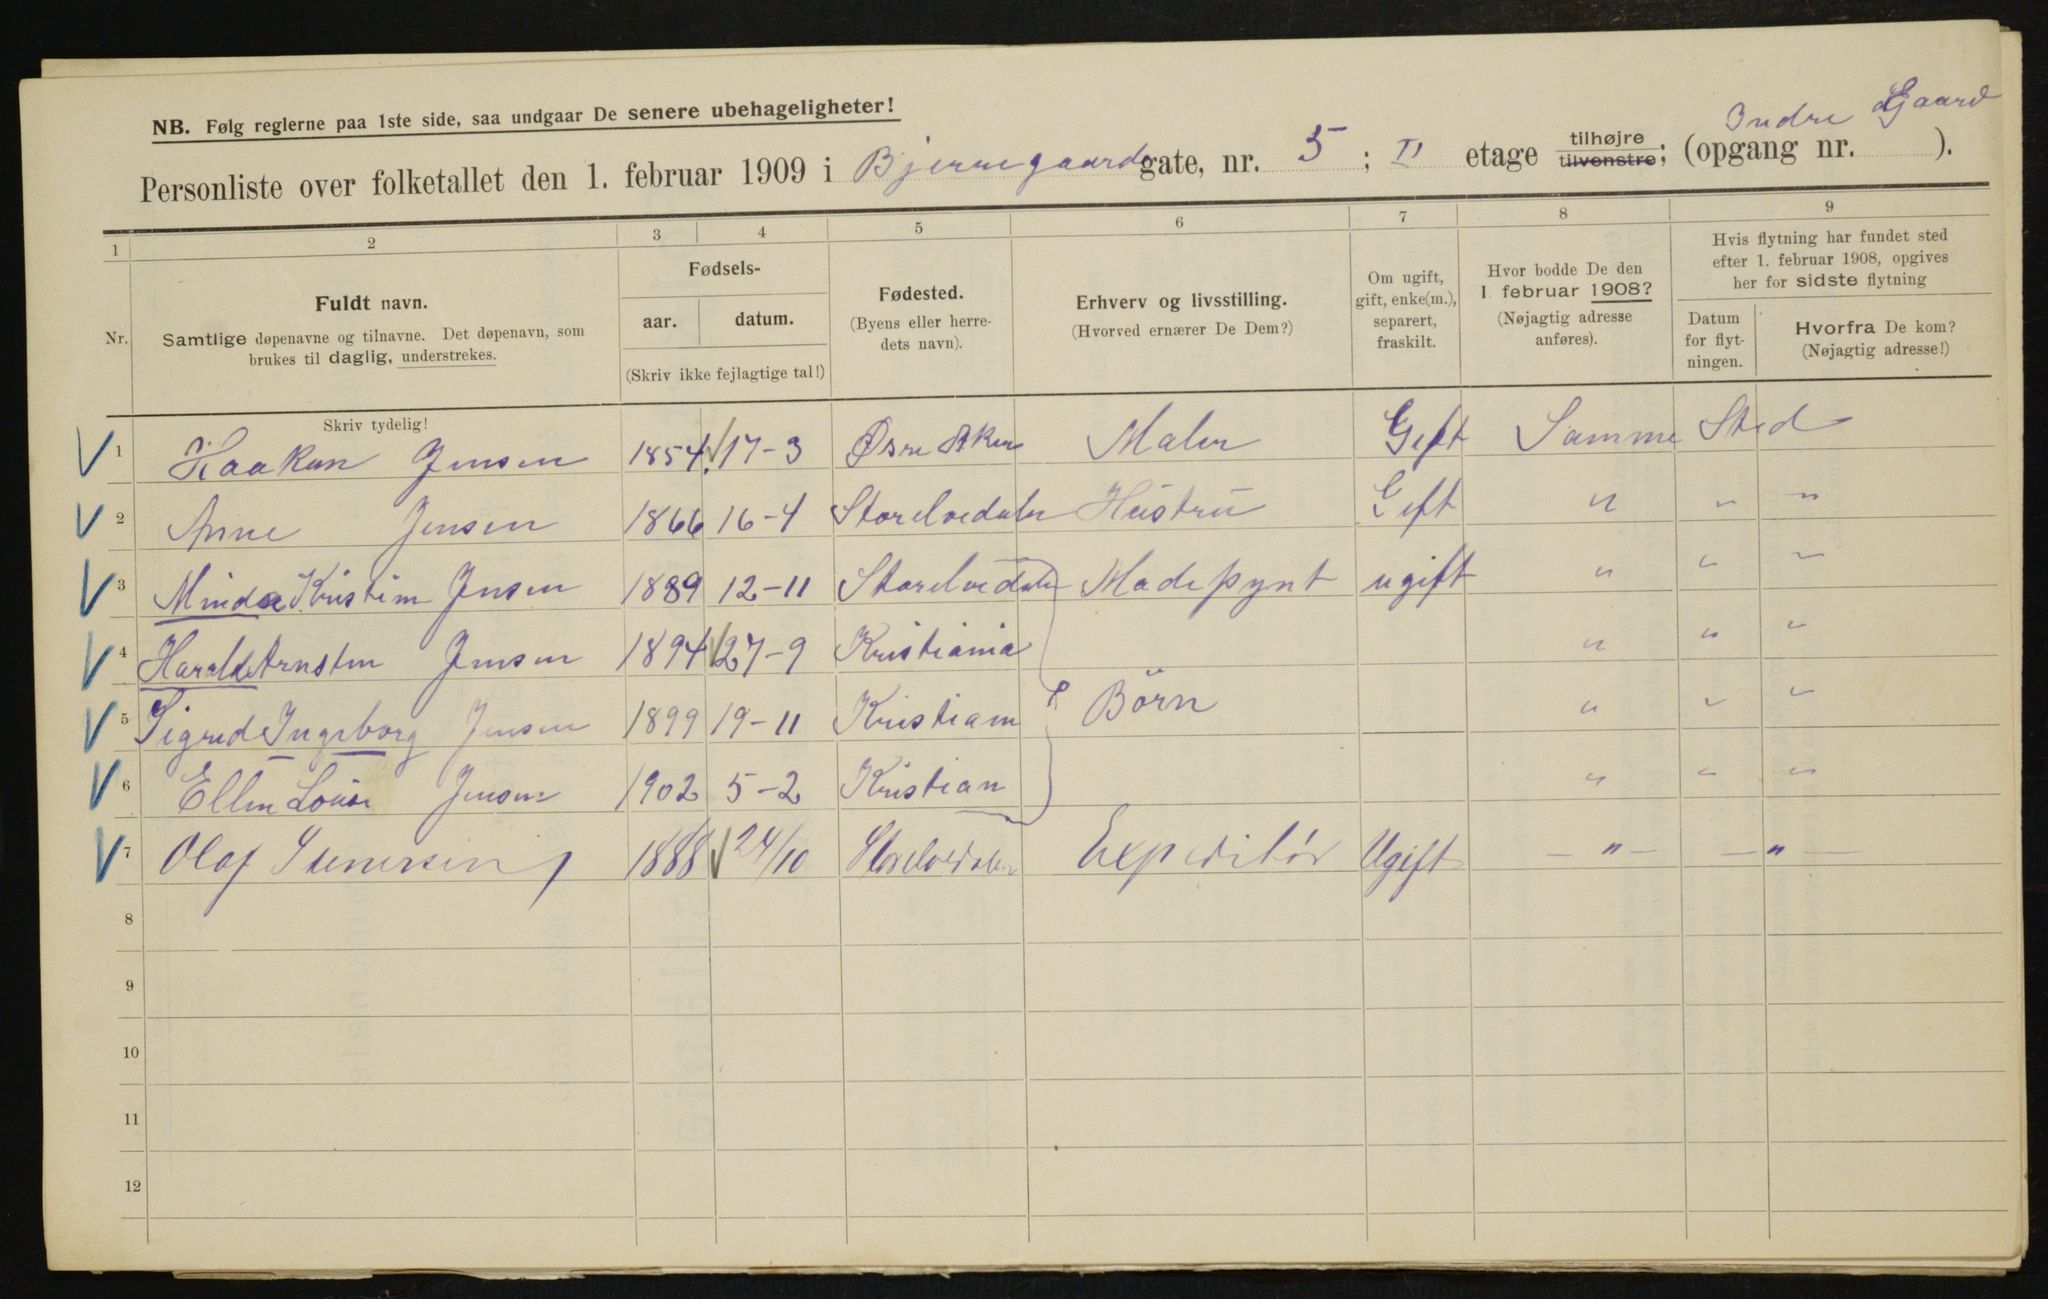 NB. Følg reglerne paa 1ste side, saa undgaar De senere ubehageligheter!
Indre Gaard
Personliste over folketallet den 1. februar 1909 i Bjerregaards gate, nr. 5 ; II etage tilhøjre tilvenstre; (opgang nr. ).
1 2 3 4 5 6 7 8 9
Nr.
Fuldt navn.
Samtlige døpenavne og tilnavne. Det døpenavn, som
brukes til daglig, understrekes.
Fødsels-
aar. datum.
(Skriv ikke fejlagtige tal!)
Fødested.
(Byens eller herre-
dets navn).
Erhverv og livsstilling.
(Hvorved ernærer De Dem?)
Om ugift,
gift, enke(m.),
separert,
fraskilt.
Hvor bodde De den
1. februar 1908?
(Nøjagtig adresse
anføres).
Hvis flytning har fundet sted
efter 1. februar 1908, opgives
her for sidste flytning
Datum
for flyt-
ningen.
Hvorfra De kom?
(Nøjagtig adresse!)
Skriv tydelig!
1 Haakan Jensen 1854 17-3 Øsre Aker Maler Gift Samme Sted
2 Anne Jensen 1866 16-4 Storelvedalen Hustru Gift " " "
3 Minda Kristine Jensen 1889 12-11 Storelvedalen Madepynt ugift " " "
4 Harald Arnsten Jensen 1894 27-9 Kristiania " " "
5 Sigrid Ingeborg Jensen 1899 19-11 Kristiani Börn " " "
6 Ellen Louise Jensen 1902 5-2 Kristian " " "
7 Olaf Stenersen 1888 24/10 Storelvedalen Expeditör Ugift - " - - " -
8
9
10
11
12